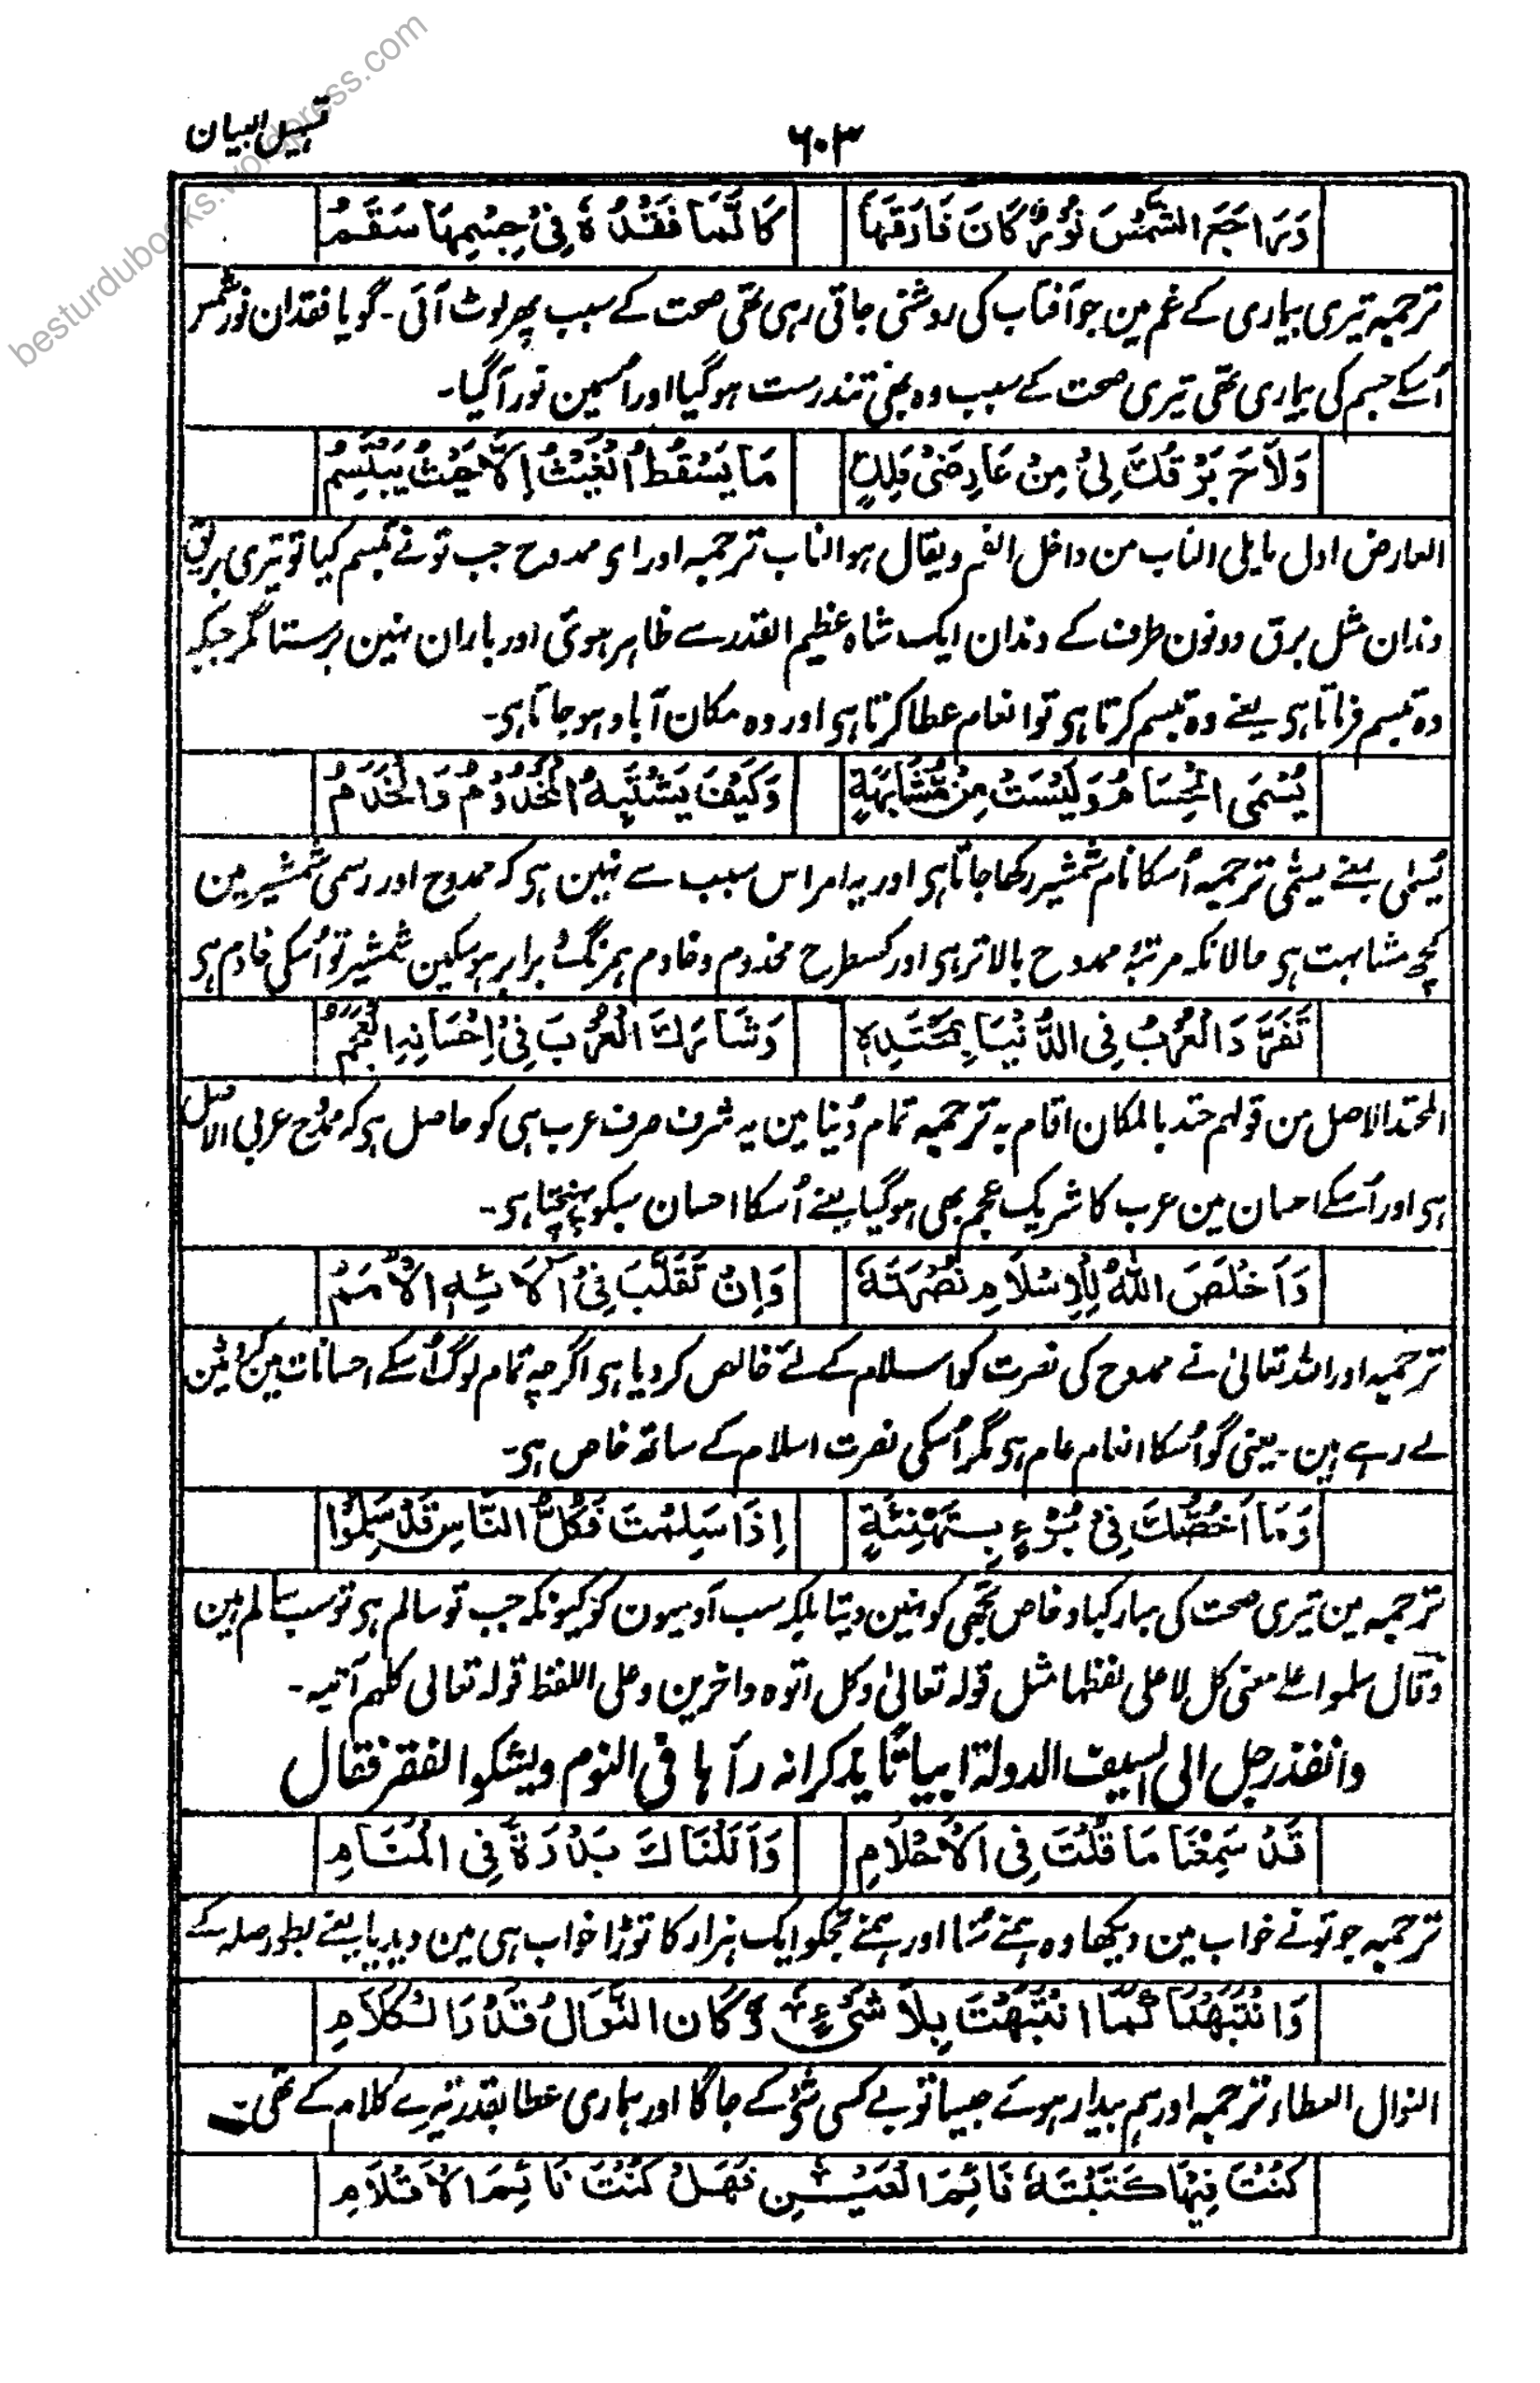 تسہیل البیان
۶۰۳
وَرَاجَعَ الشَّمْسَ نُوْرٌ كَانَ فَارَقَهَا كَاَنَّمَا فَقْدُهٗ فِيْ جِسْمِهَا سَقَمُ
ترجمہ تیری بیماری کے غم مین جو آفتاب کی روشنی جاتی رہی تھی صحت کے سبب پھر لوٹ آئی ۔ گویا فقدان نور شمس
اُسکے جسم کی بیماری تھی تیری صحت کے سبب وہ بھی تندرست ہوگیا اور اُسمین نور آگیا ۔
وَلَاحَ بَرْقُكَ لِيْ مِنْ عَارِضَيْ مَلِكٍ مَا يَسْقُطُ الْغَيْثُ اِلَّا حَيْثُ يَبْتَسِمُ
العارض اول مایلی الناب من داخل الفم ویقال ہو الناب ترجمہ اور ای ممدوح جب تو نے تبسم کیا تو تیری برق
دندان مثل برق دونون طرف کے دندان ایک شاہ عظیم القدر سے ظاہر ہوئی اور باران نہین برستا مگر جبکہ
وہ تبسم فرماتا ہی یعنے وہ تبسم کرتا ہی تو انعام عطا کرتا ہی اور وہ مکان آباد ہو جاتا ہی ۔
يُسْمَى الْحُسَامُ وَلَيْسَتْ مِنْ مُّشَابَهَةٍ وَكَيْفَ يَشْتَبِهُ الْمَخْدُوْمُ وَالْخَدَمُ
یُسمٰی یعنے یسمّی ترجمہ اُسکا نام شمشیر رکھا جاتا ہی اور یہ امر اس سبب سے نہین ہی کہ ممدوح اور رسمی شمشیر مین
کچھ مشابہت ہی حالانکہ مرتبۂ ممدوح بالاتر ہی اور کسطرح مخدوم و خادم ہمرنگ و برابر ہوسکین شمشیر تو اُسکی خادم ہی
تَفَرَّدَ الْعُرْبُ فِي الدُّنْيَا بِمَحْتَدِهٖ وَشَارَكَ الْعُرْبَ فِيْ اِحْسَانِهِ الْعَجَمُ
المحتد الاصل من قولہم حتد بالمکان اقام بہ ترجمہ تمام دُنیا مین یہ شرف صرف عرب ہی کو حاصل ہی کہ ممدوح عربی الاصل
ہی اور اُسکے احسان مین عرب کا شریک عجم بھی ہوگیا یعنے اُسکا احسان سبکو پہنچتا ہی ۔
وَاَخْلَصَ اللّٰهُ لِلْاِسْلَامِ نُصْرَتَهٗ وَاِنْ تَقَلَّبَ فِيْ اٰلَائِهِ الْاُمَمُ
ترجمہ اور اللہ تعالیٰ نے ممدوح کی نصرت کو اسلام کے لئے خالص کر دیا ہی اگرچہ تمام لوگ اُسکے احسانات مین کروٹین
لے رہے ہین ۔ یعنی گو اُسکا انعام عام ہی مگر اُسکی نصرت اسلام کے ساتھ خاص ہی ۔
وَمَا اَخُصُّكَ فِيْ بُرْءٍ بِتَهْنِئَةٍ اِذَا سَلِمْتَ فَكُلُّ النَّاسِ قَدْ سَلِمُوْا
ترجمہ مین تیری صحت کی مبارکباد خاص تجھی کو نہین دیتا بلکہ سب آدمیون کو کیونکہ جب تو سالم ہی تو سب سالم ہین
وقال سلموا علے معنی کل لا علی لفظہا مثل قولہ تعالیٰ وکل اتوہ داخرین وعلی اللفظ قولہ تعالی کلہم آتیہ ۔
وانفذ رجل الی سیف الدولۃ ابیاتًا یذکر انہ رآہا فی النوم ویشکوا الفقر فقال
قَدْ سَمِعْنَا مَا قُلْتَ فِي الْاَحْلَامِ وَاَنَلْنَاكَ بَدْرَةً فِي الْمَنَامِ
ترجمہ جو تو نے خواب مین دیکھا وہ ہمنے سُنا اور ہمنے تجکو ایک ہزار کا توڑا خواب ہی مین دیدیا یعنے بطور صلہ کے
وَانْتَبَهْنَا كَمَا انْتَبَهْتَ بِلَا شَيْءٍ وَّكَانَ النَّوَالُ قَدْرَ الْكَلَامِ
النوال العطاء ترجمہ اور ہم بیدار ہوئے جیسا تو بے کسی شئ کے جاگا اور ہماری عطا بقدر تیرے کلام کے تھی ۔
كُنْتَ فِيْهَا كَتَبْتَهٗ نَائِمَ الْعَيْنِ فَهَلْ كُنْتَ نَائِمَ الْاَقْلَامِ
besturdubooks.wordpress.com